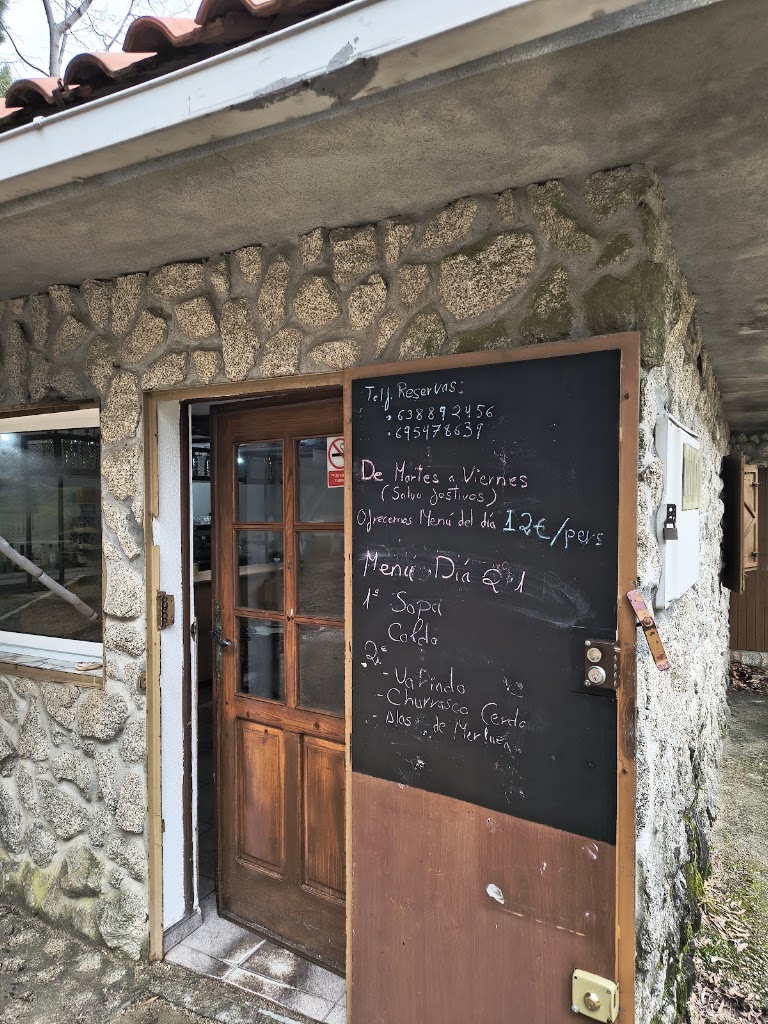 Telf. Reservas:
· 638892456
· 695478639
De Martes a Viernes
(Salvo festivos)
Ofrecemos Menú del día 12€/pers
Menú Día 21
1º Sopa
Caldo
2º
- Variado
- Churrasco Cerdo
- Alas de Merluza